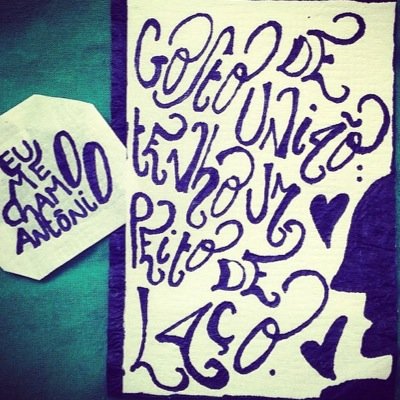 GOSTO DE
UNIÃO...
TENHO UM
PEITO DE
LAÇO.
EU
ME
CHAMO
ANTÔNIO